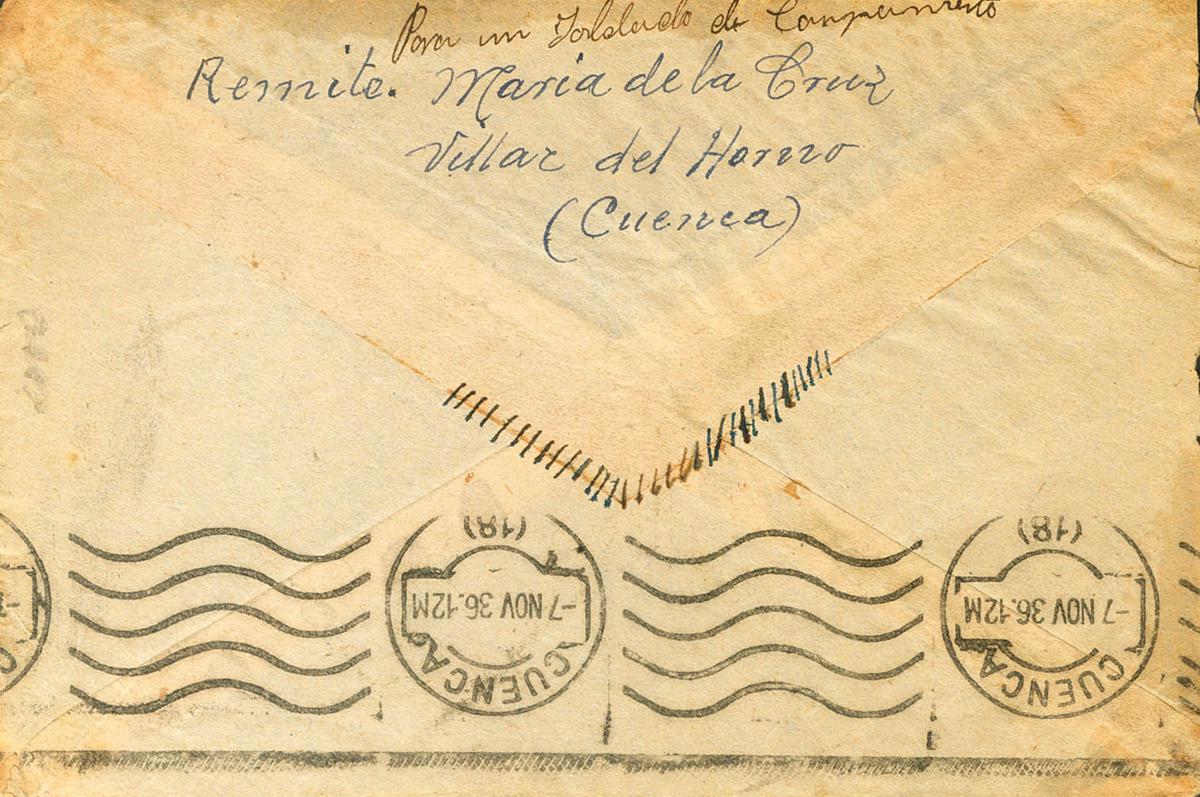 Para un Soldado de Campamento
Remite. Maria de la Cruz
Villar del Horno
(Cuenca)
CUENCA
-7 NOV 36.12M
(18)
CUENCA
-7 NOV 36.12M
(18)